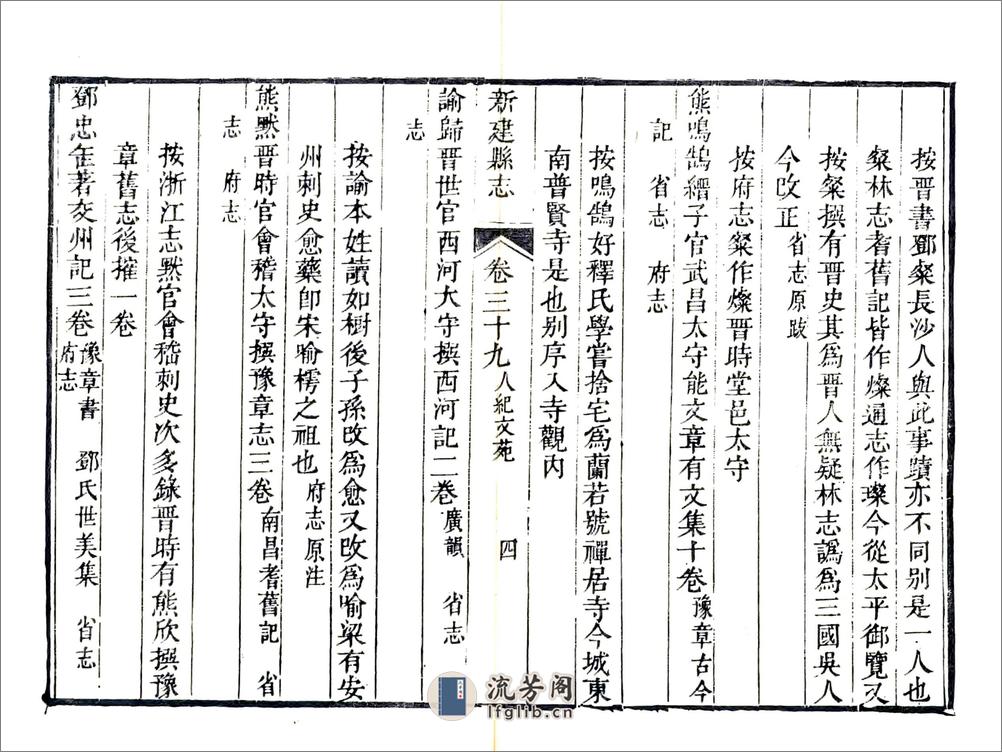 按晉書鄧粲長沙人與此事蹟亦不同别是一人也
粲林志耆舊記皆作燦通志作璨今從太平御覽又
按粲撰有晉史其爲晉人無疑林志譌爲三國吳人
今改正 省志原跋
按府志粲作燦晉時堂邑太守
熊鳴鵠縉子官武昌太守能文章有文集十卷 豫章古今
記 省志 府志
按鳴鵠好釋氏學嘗捨宅爲蘭若號禪居寺今城東
南普賢寺是也别序入寺觀内
新建縣志 卷三十九 人紀文苑 四
諭歸晉世官西河大守撰西河記二卷 廣韻 省志
志
按諭本姓讀如樹後子孫改爲愈又改爲喻梁有安
州刺史愈藥卽宋喻樗之祖也 府志原注
熊默晉時官會稽太守撰豫章志三卷 南昌耆舊記 省
志 府志
按浙江志默官會嵇刺史次多錄晉時有熊欣撰豫
章舊志後撰一卷
鄧忠缶著交州記三卷 豫章書 鄧氏世美集 省志
府志
流芳阁
lfglib.cn